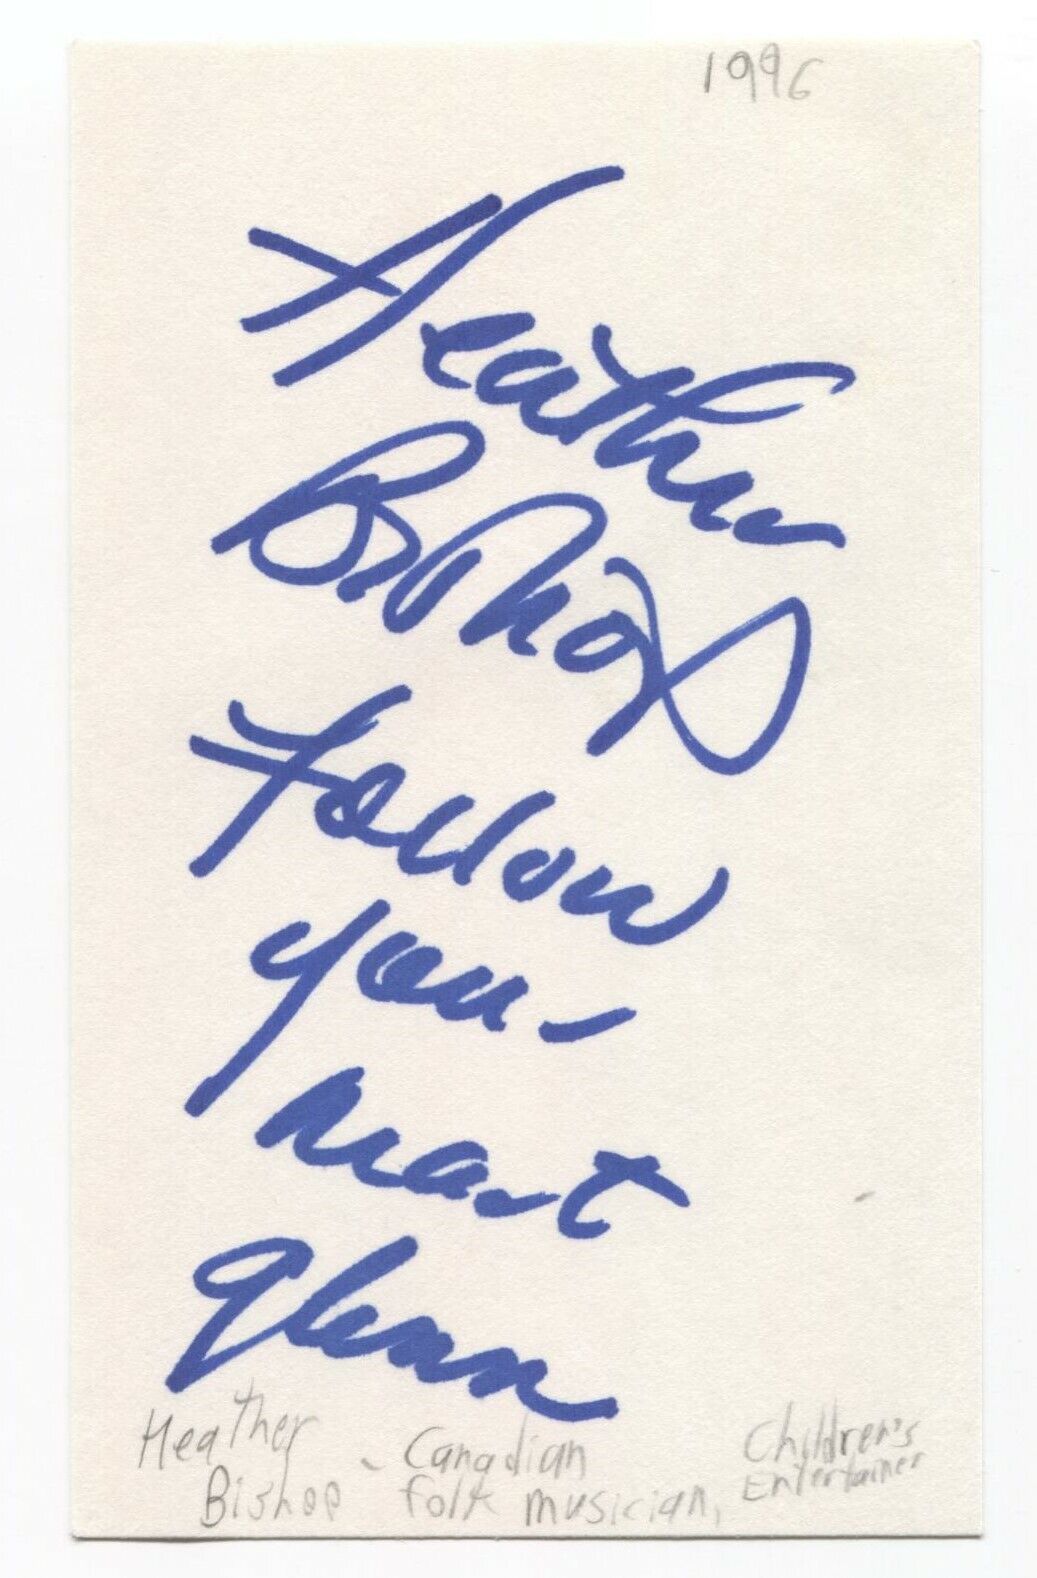 1996
Heather
Bishop
Follow
your
heart
glenn
Heather Bishop - Canadian folk musician, Children's Entertainer